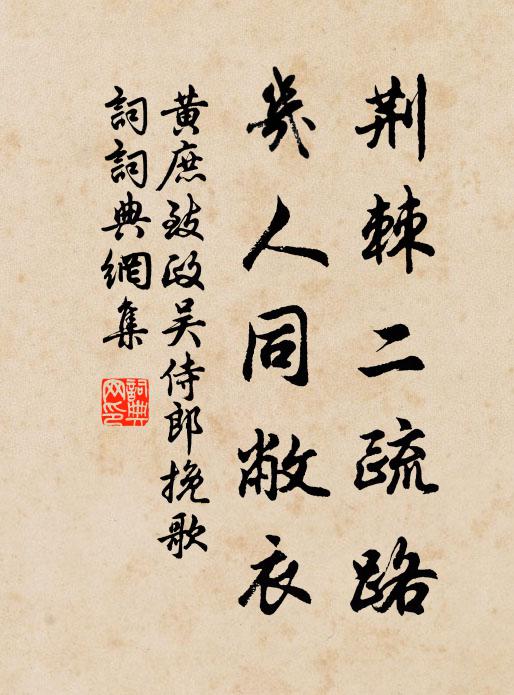 荆棘二疏路
幾人同敝衣
黄庶致政吴侍郎挽歌
詞詞典網集
詞典網印